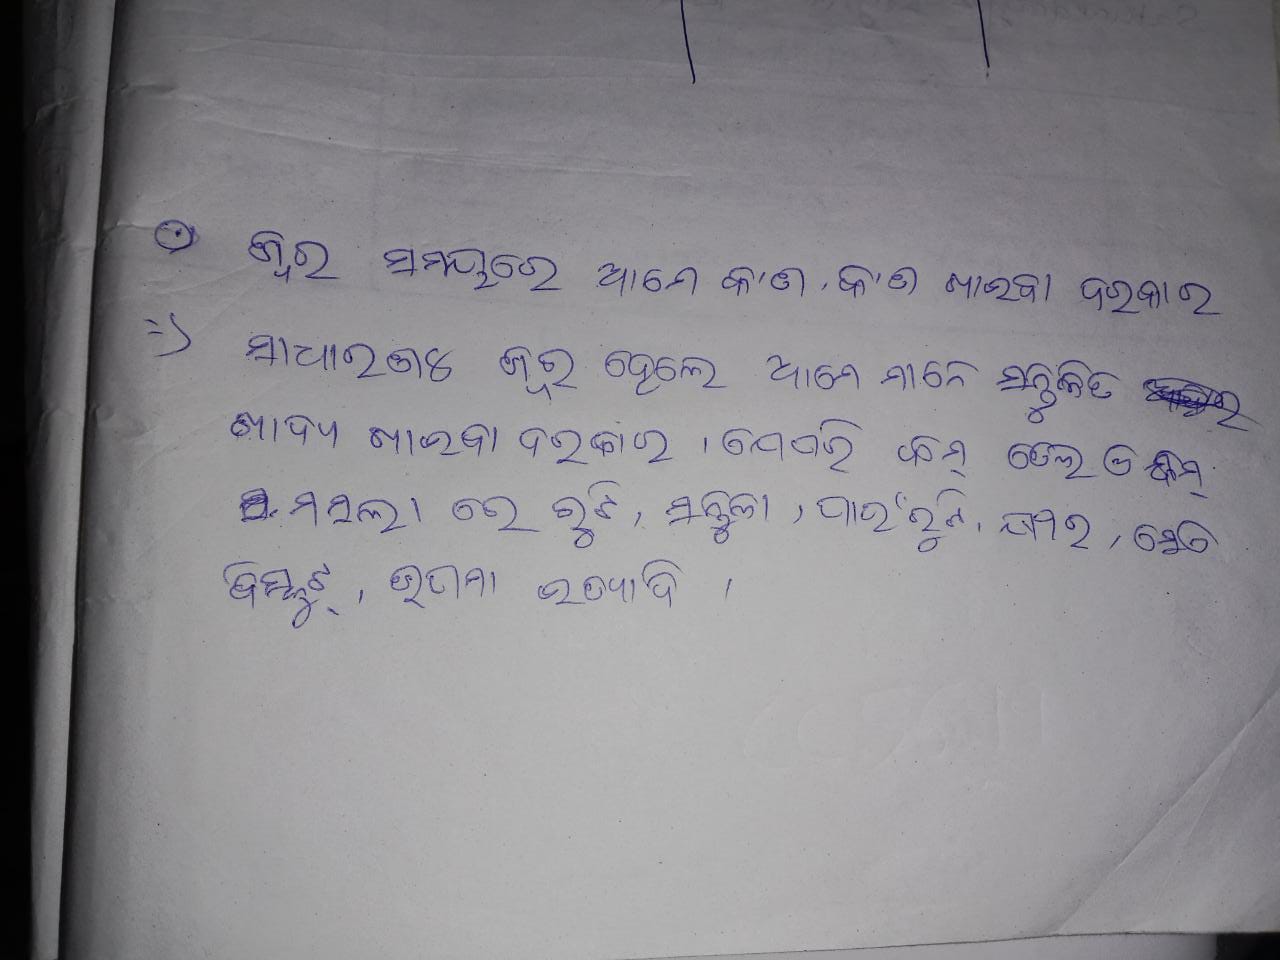 ୨ ଜ୍ୱର ସମୟରେ ଆମେ କ'ଣ, କ'ଣ ଖାଇବା ଦରକାର
=> ସାଧାରଣତଃ ଜ୍ୱର ହେଲେ ଆମେ ମାନେ ସନ୍ତୁଳିତ
ଖାଦ୍ୟ ଖାଇବା ଦରକାର । ଯେପରି କମ୍ ତେଲ ଓ କମ୍
ମସଲା ରେ ରୁଟି, ସନ୍ତୁଳା, ପାଉଁରୁଟି, କ୍ଷୀର, ସେଓ
ବିସ୍କୁଟ୍, ଉପମା ଇତ୍ୟାଦି ।